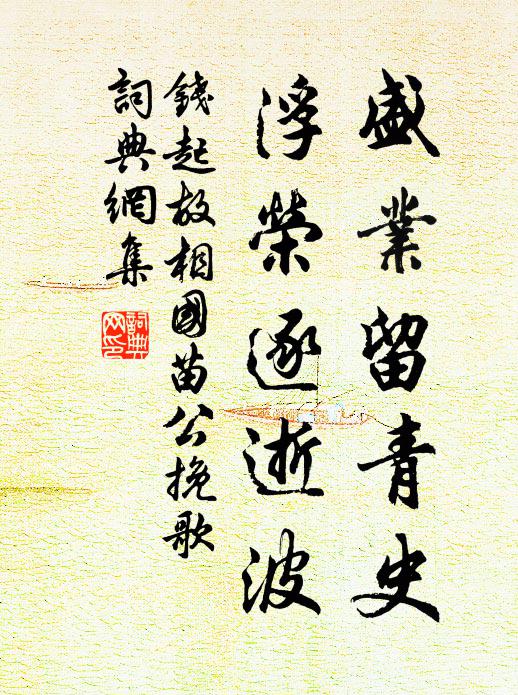 盛業留青史
浮榮逐逝波
錢起故相國苗公挽歌
詞典網集
詞典網印